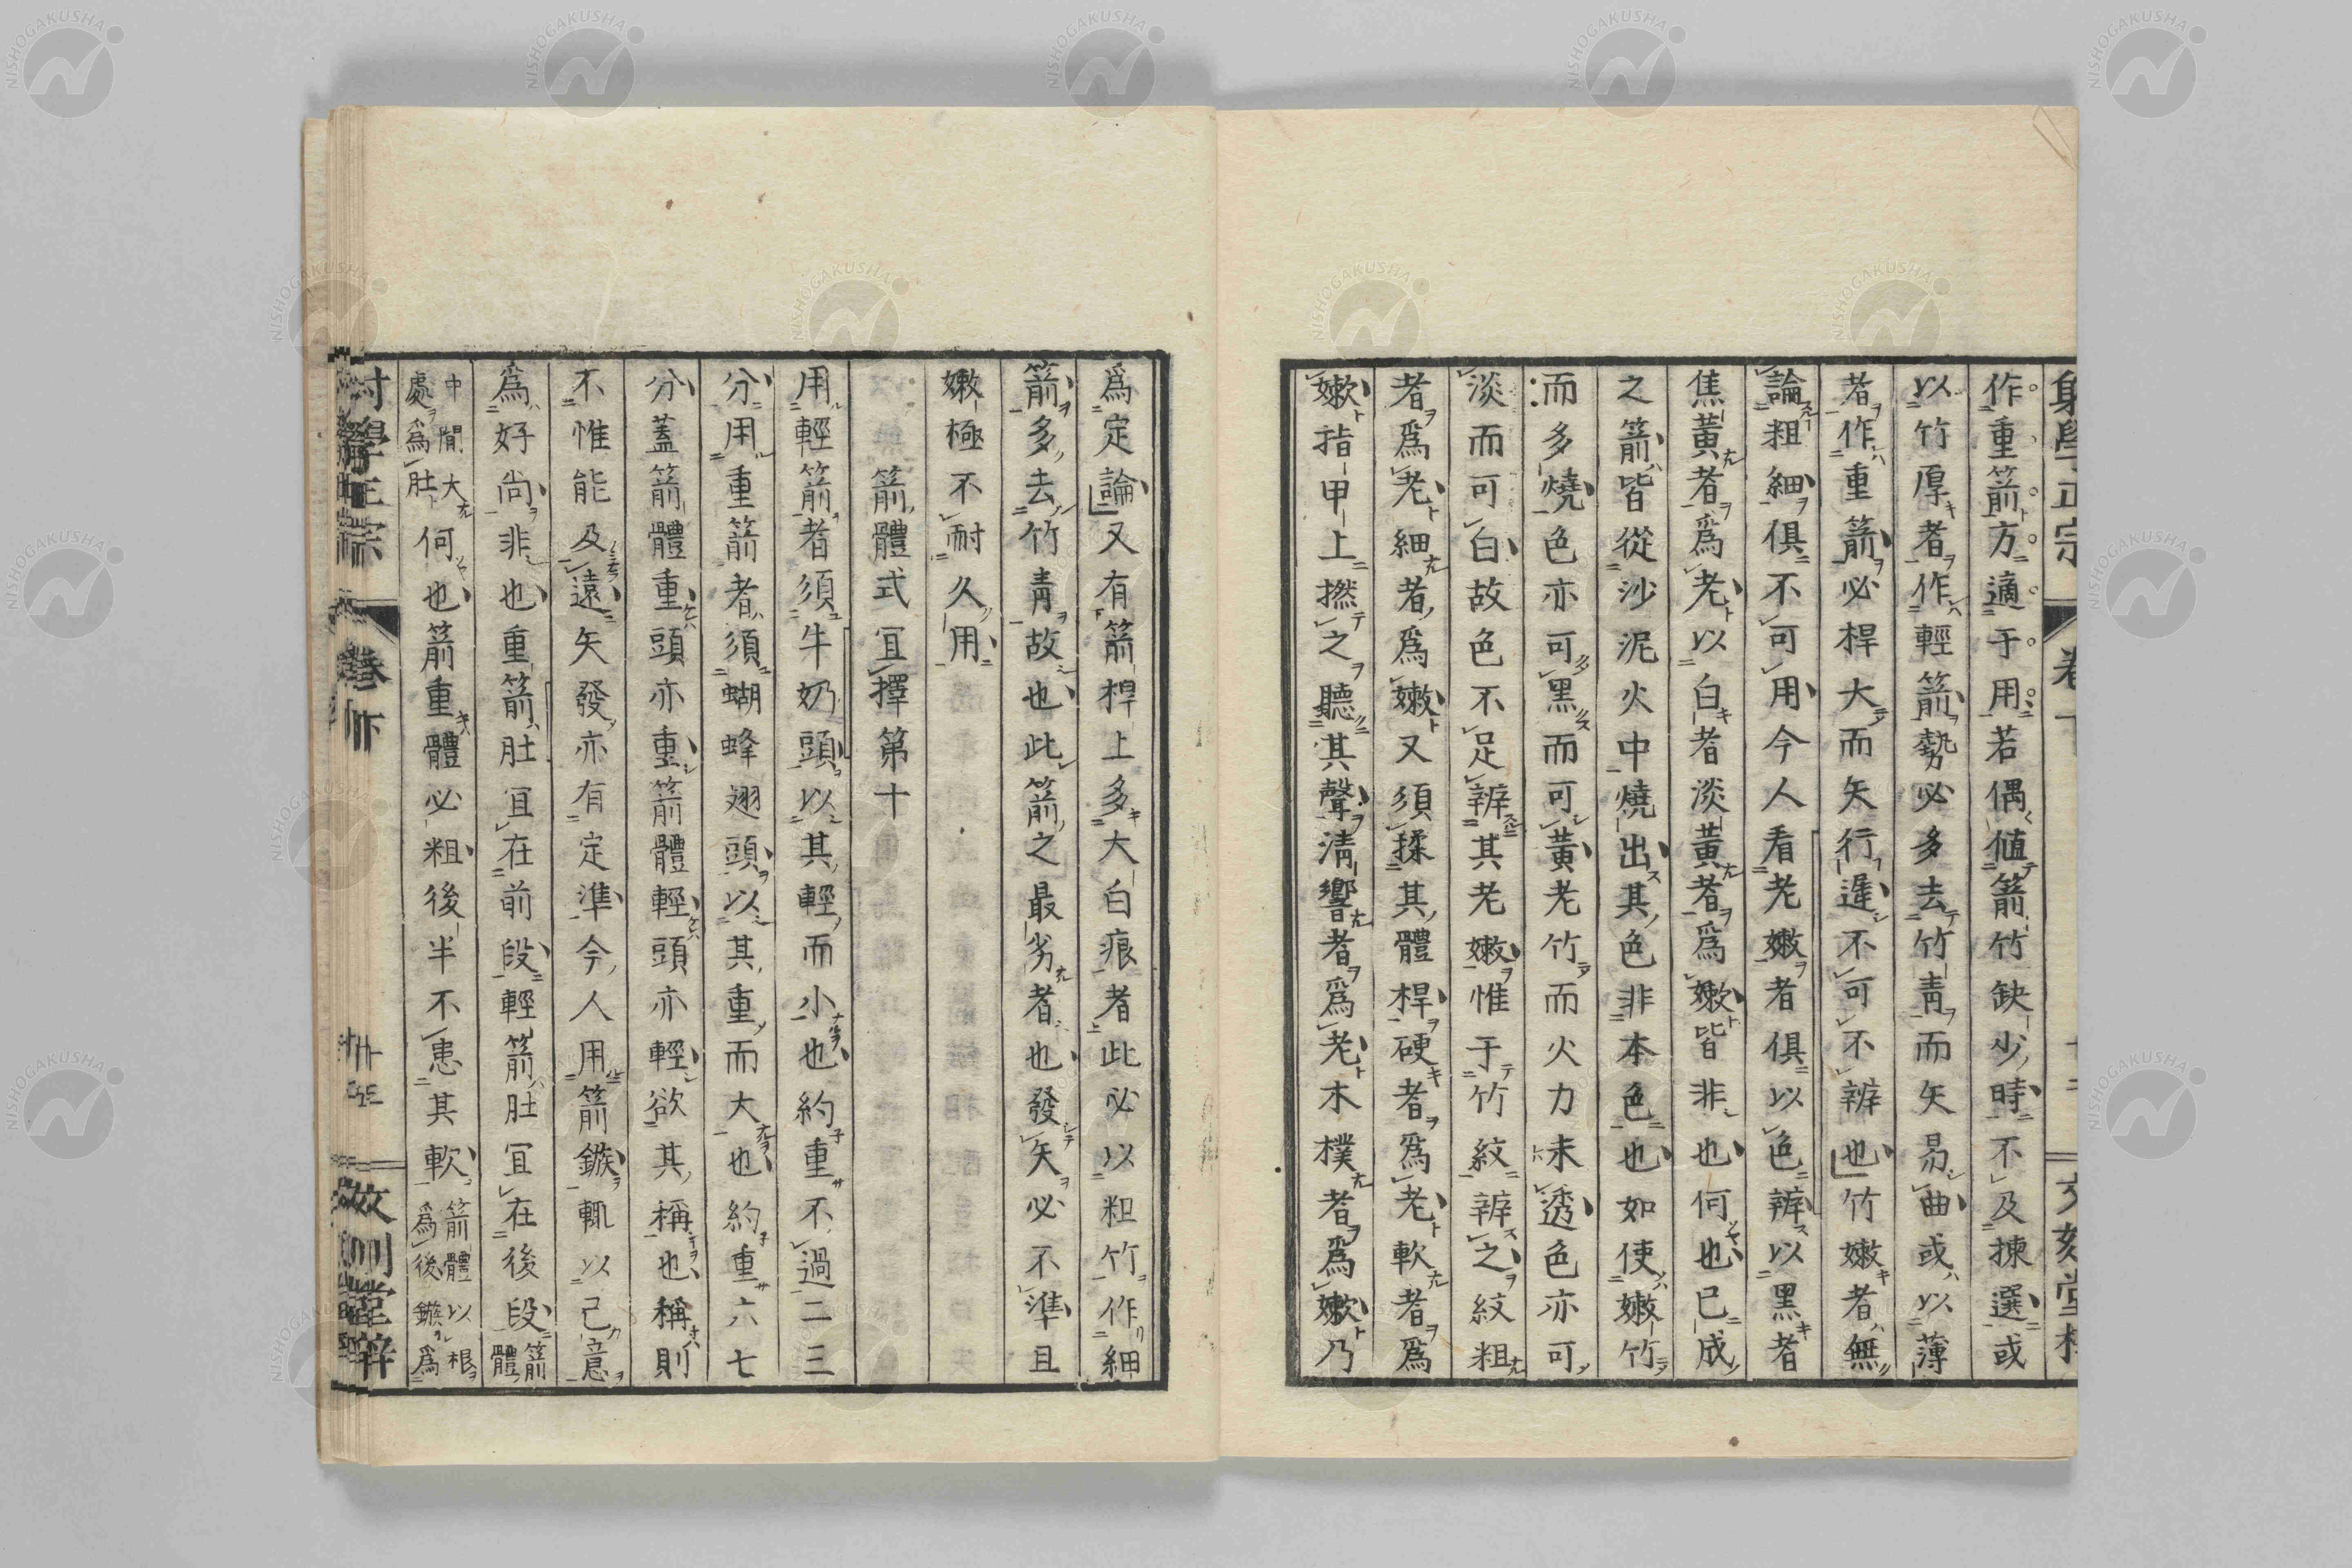 作重箭方適于用若偶値箭竹缺少時不及揀選或
以竹厚者作輕箭勢必多去竹靑而矢易曲或以薄
者作重箭必桿大而矢行遲不可不辨也竹嫩者無
論粗細俱不可用今人看老嫩者俱以色辨以黑者
焦黃者爲老以白者淡黃者爲嫩皆非也何也已成
之箭皆從沙泥火中燒出其色非本色也如使嫩竹
而多燒色亦可黑而可黃老竹而火力未透色亦可
淡而可白故色不足辨其老嫩惟于竹紋辨之紋粗
者爲老細者爲嫩又須揉其體桿硬者爲老軟者爲
嫩指甲上撚之聽其聲淸響者爲老木樸者爲嫩乃
爲定論又有箭桿上多大白痕者此必以粗竹作細
箭多去竹靑故也此箭之最劣者也發矢必不準且
嫩極不耐久用
箭體式冝擇第十
用輕箭者須牛奶頭以其輕而小也約重不過二三
分用重箭者須蝴蜂翅頭以其重而大也約重六七
分蓋箭體重頭亦重箭體輕頭亦輕欲其稱也稱則
不惟能及遠矢發亦有定準今人用箭鏃輒以己意
爲好尚非也重箭肚冝在前段輕箭肚冝在後段箭體
中間大處爲肚何也箭重體必粗後半不患其軟箭體以根爲後鏃爲
NISHOGAKUSHA